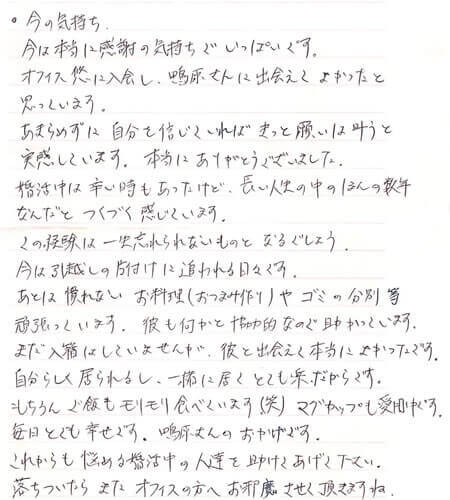 。今の気持ち.
今は本当に感謝の気持ちでいっぱいです。
オフィス悠に入会し、鴫原さんに出会えてよかったと
思っています。
あきらめずに自分を信じていればきっと願いは叶うと
実感しています。本当にありがとうございました.
婚活中は辛い時もあったけど、長い人生の中のほんの数年
なんだとつくづく感じています。
この経験は一生忘れられないものとなるでしょう.
今は引越しの片付けに追われる日々です。
あとは慣れないお料理(おつまみ作り)やゴミの分別等
頑張っています。彼も何かと協力的なので助かっています.
まだ入籍はしていませんが、彼と出会えて本当によかったです。
自分らしく居られるし、一緒に居てとても楽だからです。
もちろんご飯もモリモリ食べています(笑)マグカップも愛用中です。
毎日とても幸せです。鴫原さんのおかげです。
これからも悩める婚活中の人達を助けてあげて下さい.
落ちついたらまたオフィスの方へお邪魔させて頂きますね.